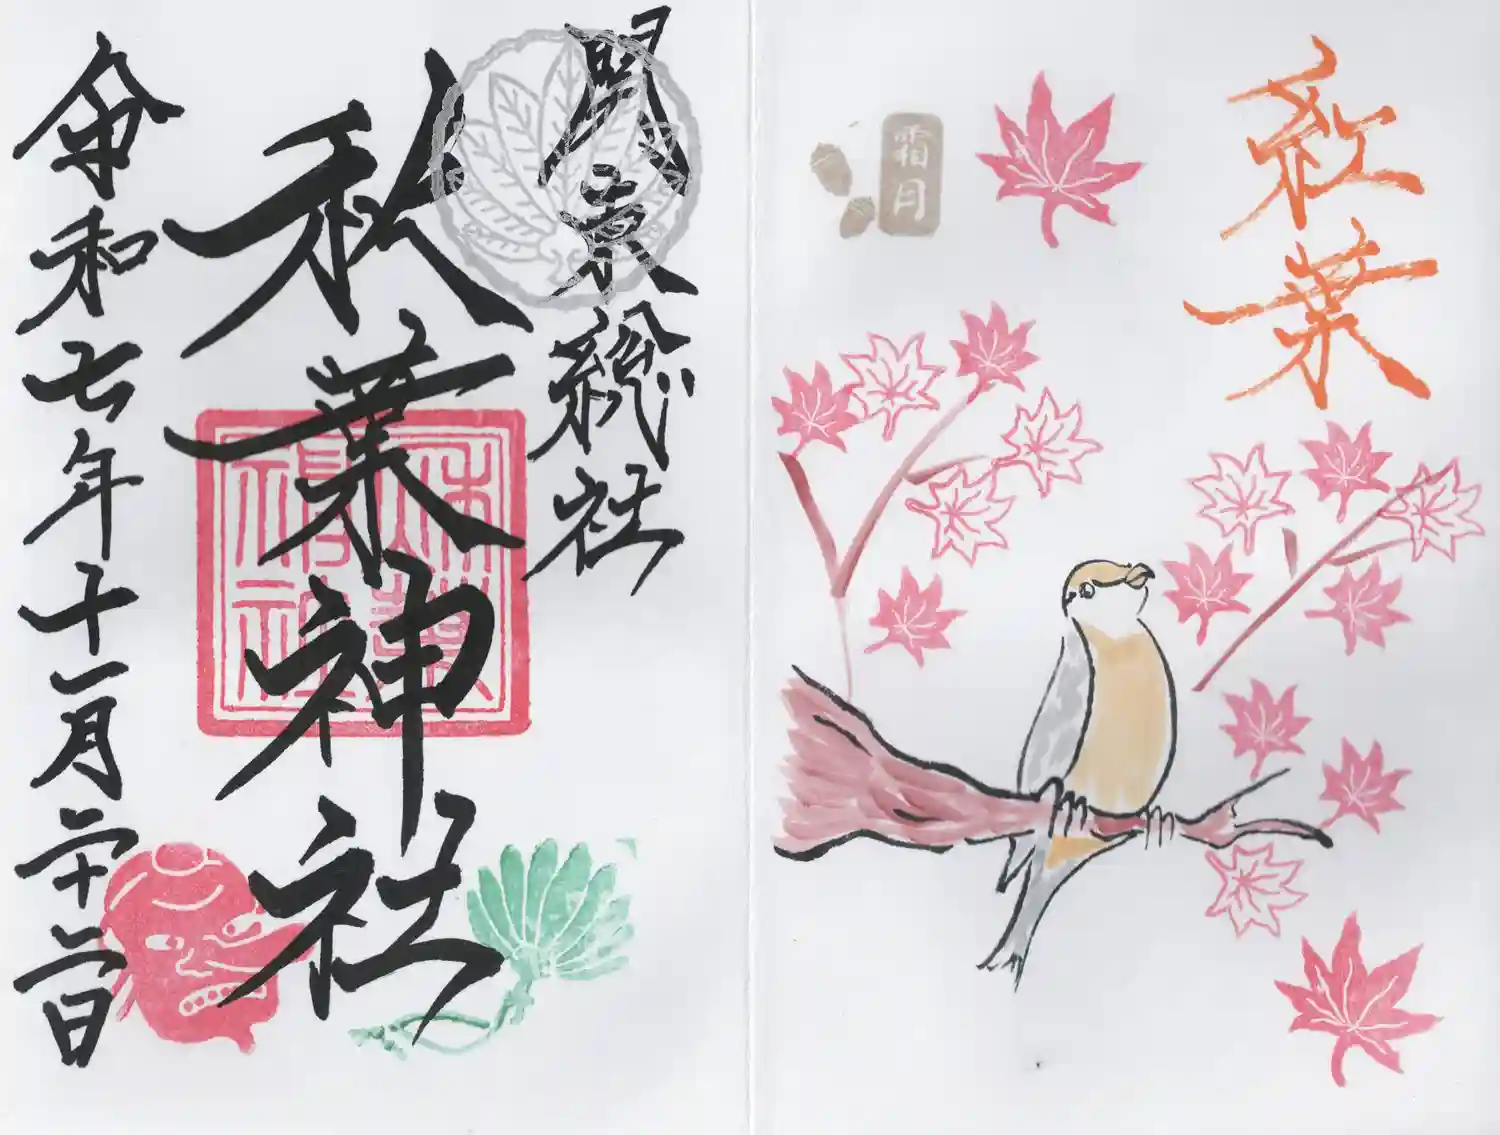 紅葉
霜月
関東総社
秋葉神社
令和七年十一月二十二日